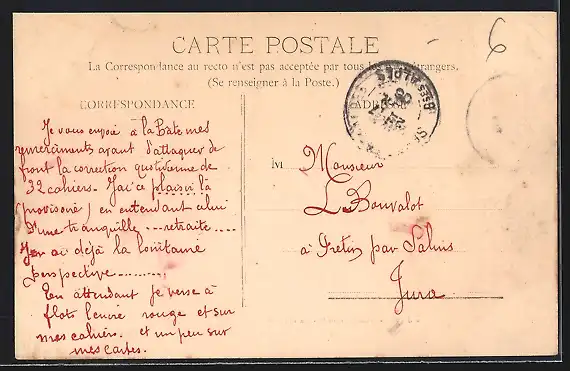 CARTE POSTALE
La Correspondance au recto n'est pas acceptée par tous les pays étrangers.
(Se renseigner à la Poste.)
6
CORRESPONDANCE
ADRESSE
Je vous envoie à la hâte mes
remerciments avant d'attaquer de
front la correction quotidienne de
32 cahiers. J'ai ce plaisir là
(provisoire) en entendant celui
D'une tranquille ... retraite ....
J'en ai déjà la lointaine
perspective .........
En attendant je verse à
flots l'encre rouge et sur
mes cahiers. et un peu sur
mes cartes.
M
Monsieur
L Bouvalot
à Pretin par Salins
Jura